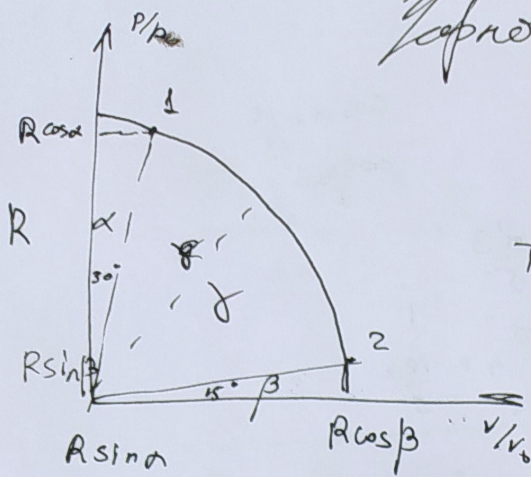 P/p₀
1
R cosα
R
α
30°
γ
2
R sinβ
15°
β
R sinα
R cosβ
V/V₀